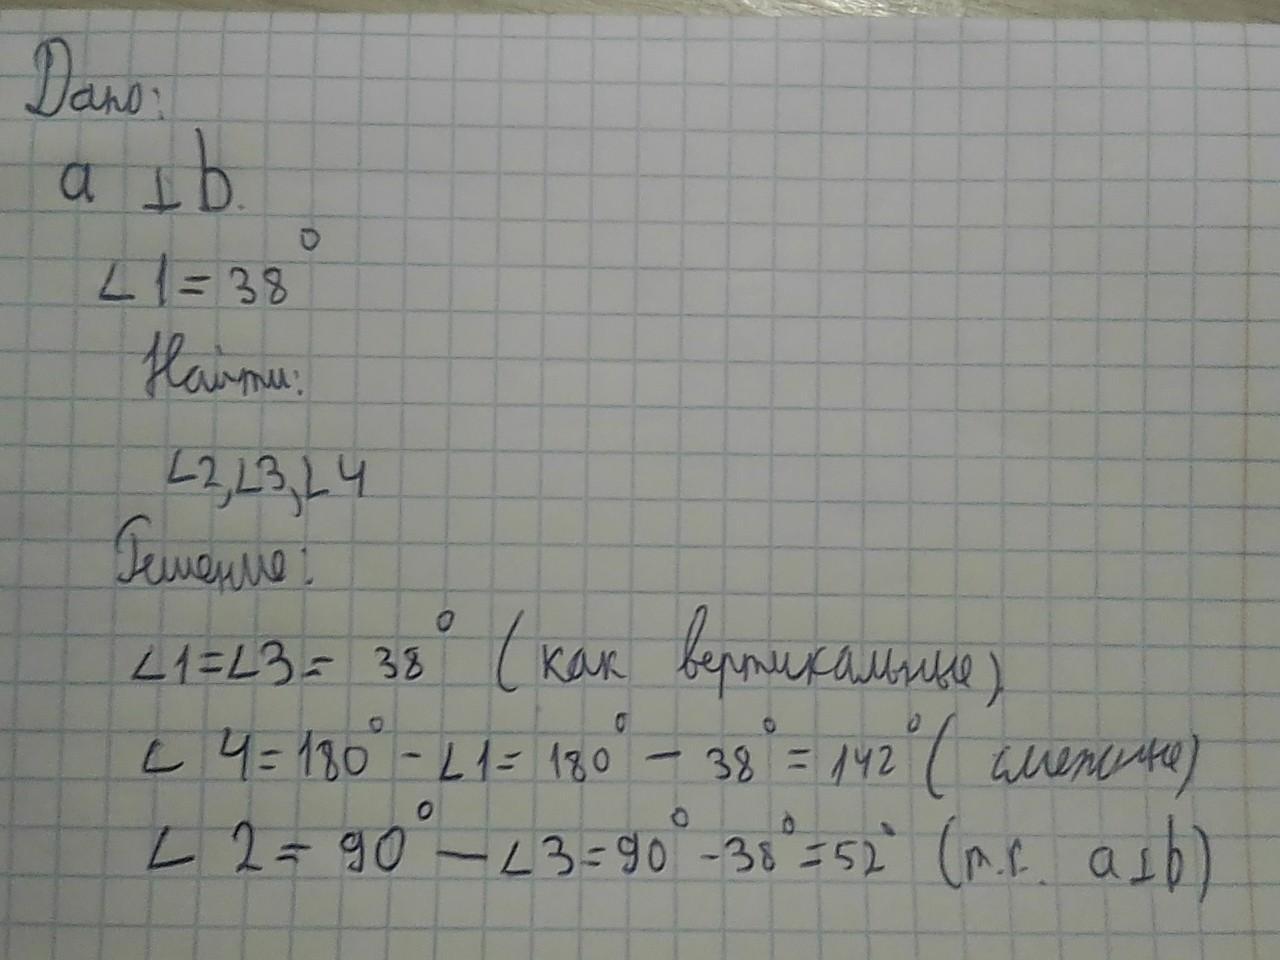 Дано:
a ⊥ b.
∠1 = 38°
Найти:
∠2, ∠3, ∠4
Решение:
∠1 = ∠3 = 38° (как вертикальные)
∠ 4 = 180° - ∠1 = 180° - 38° = 142° (смежные)
∠ 2 = 90° - ∠3 = 90° - 38° = 52° (т.к. a ⊥ b)